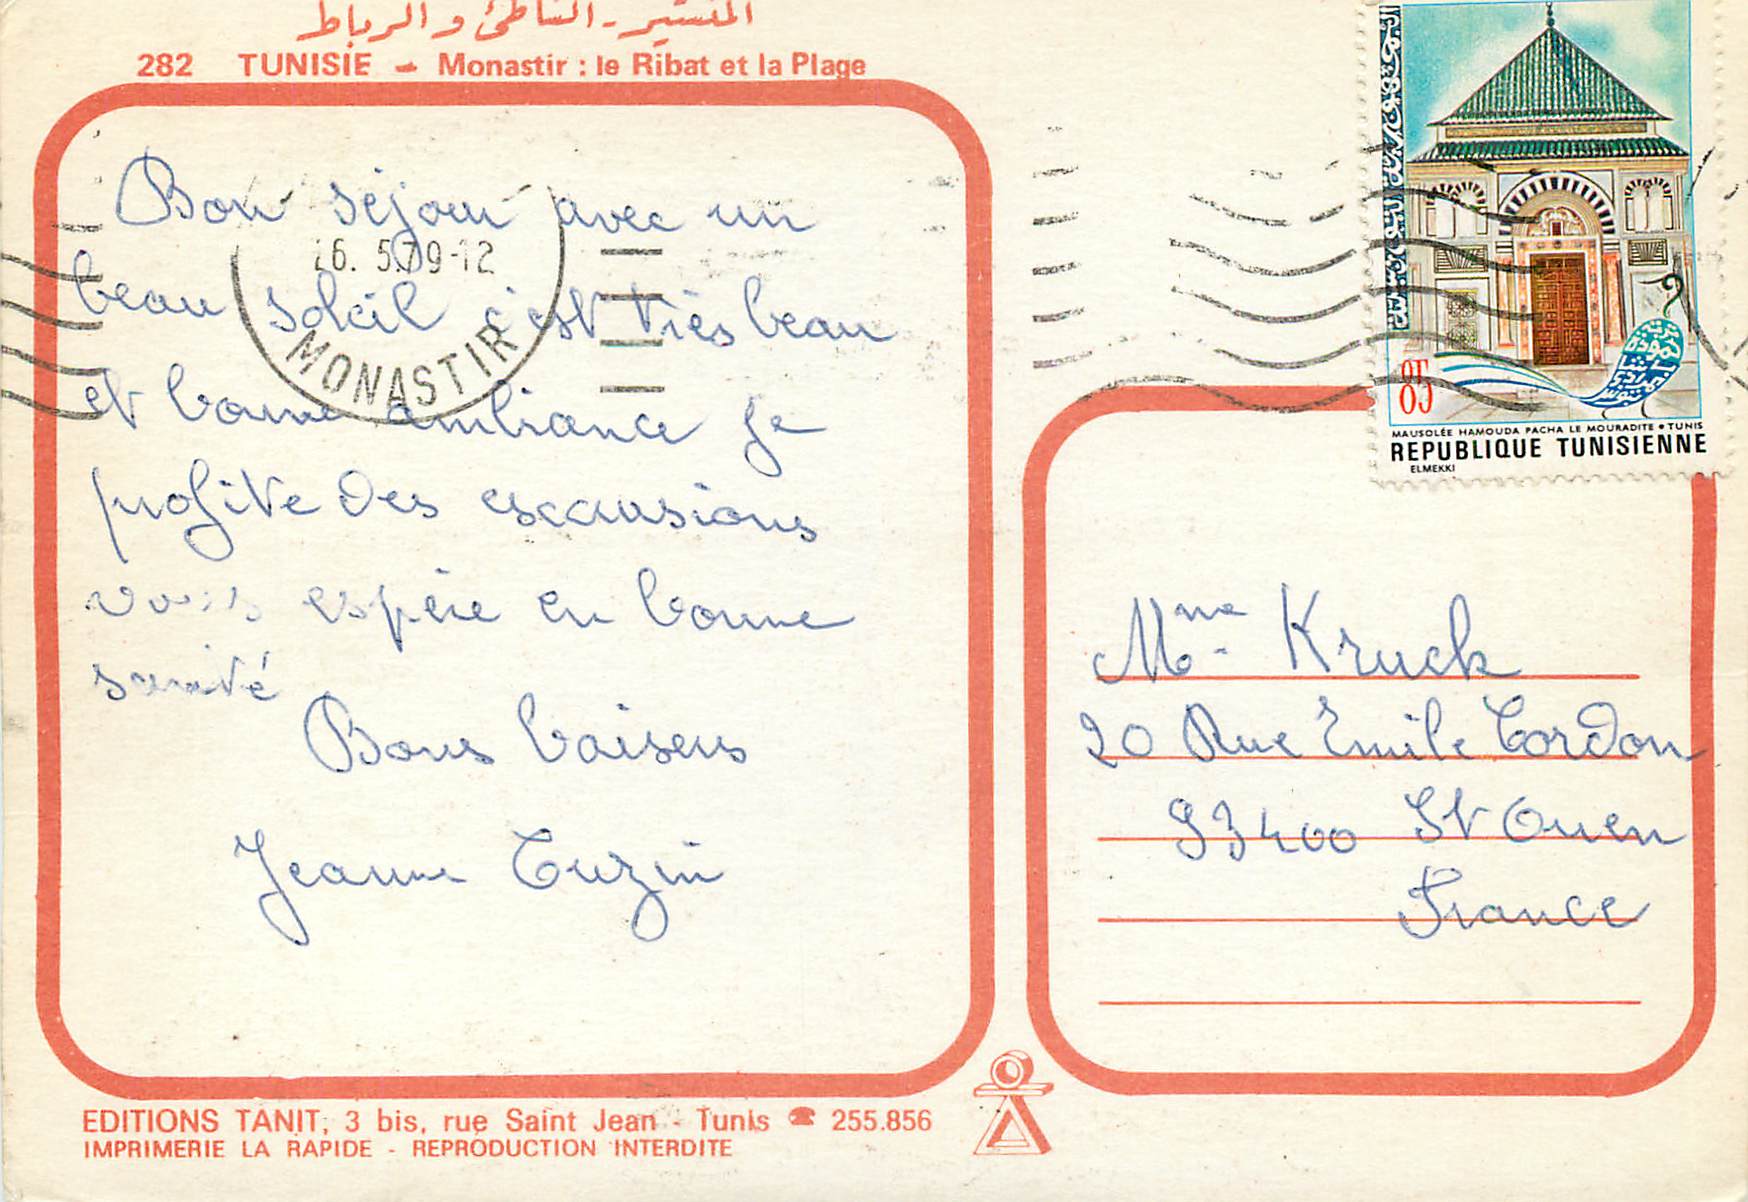 المنستير - الشاطئ و الرباط
282 TUNISIE - Monastir : le Ribat et la Plage
Bon séjour avec un
beau soleil c'est très beau
et bonne ambiance je
profite des excursions
vous espère en bonne
santé
Bons baisers
Jeanne Tuzin
6. 5.79-12
MONASTIR
85
MAUSOLÉE HAMOUDA PACHA LE MOURADITE • TUNIS
REPUBLIQUE TUNISIENNE
ELMEKKI
Mme Kruck
20 Rue Emile Cordon
93400 St Ouen
France
EDITIONS TANIT, 3 bis, rue Saint Jean - Tunis ☎ 255.856
IMPRIMERIE LA RAPIDE - REPRODUCTION INTERDITE